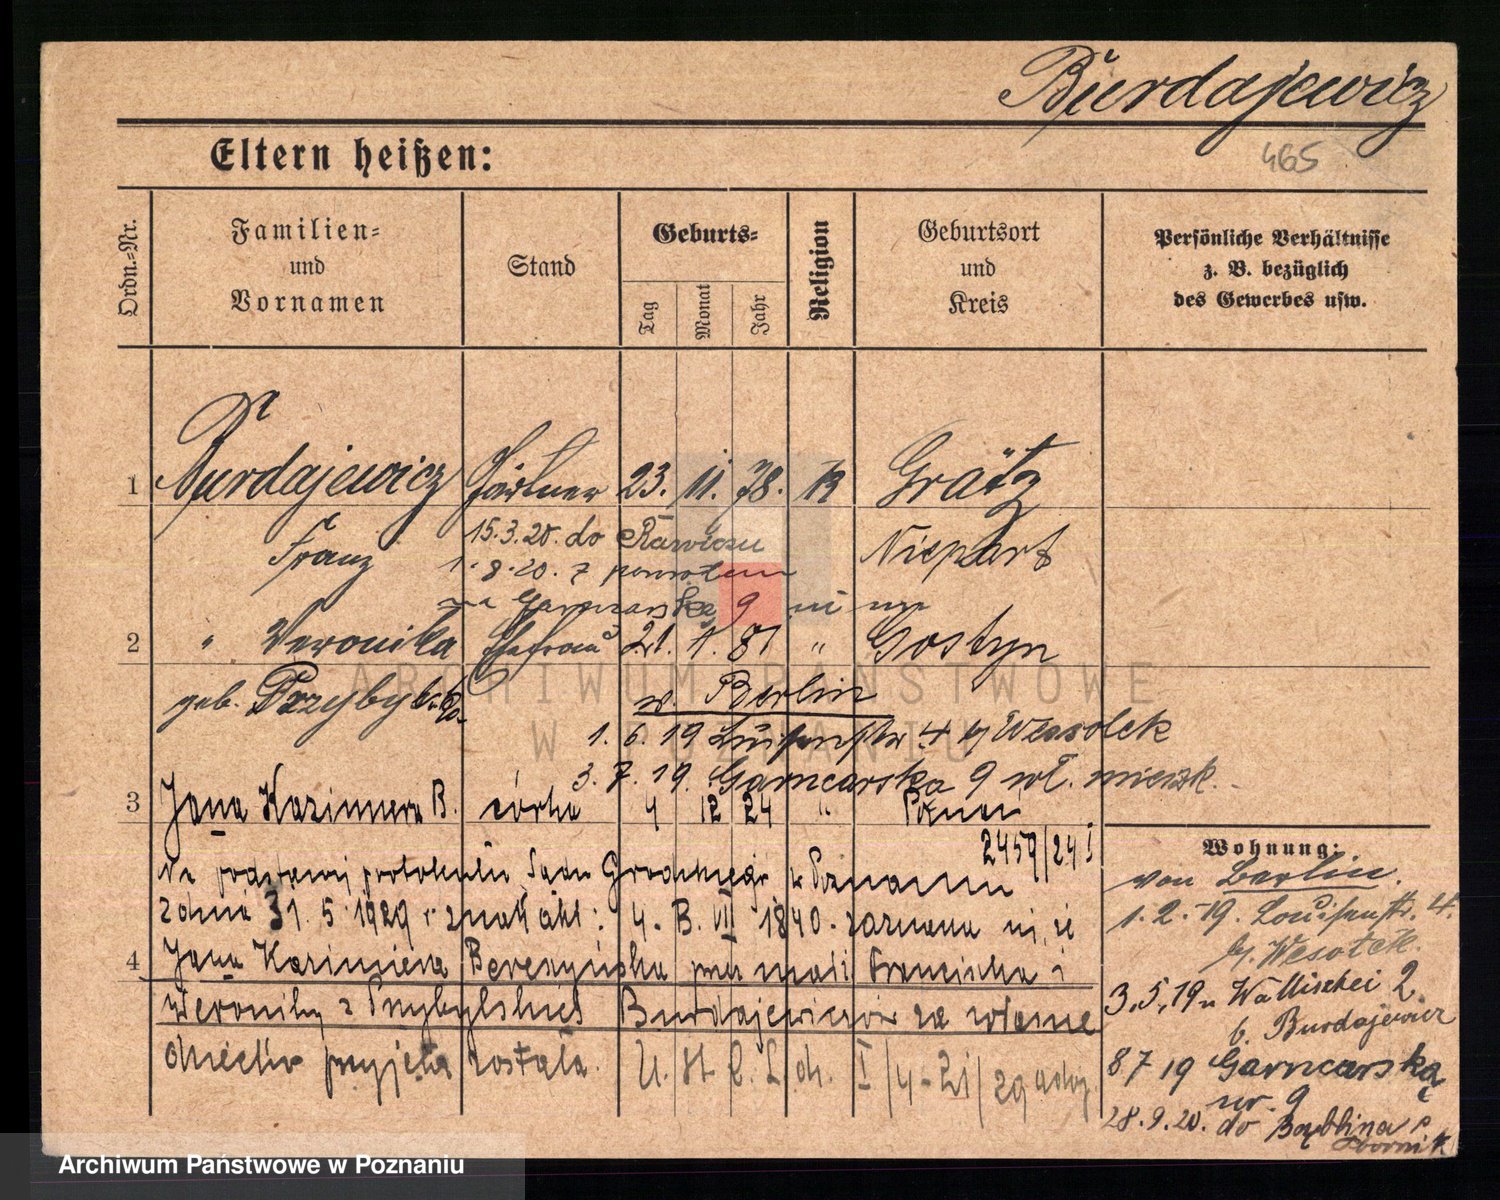 Burdajewicz
Eltern heißen:
465
Ordn.-Nr.
Familien-
und
Vornamen
Stand
Geburts-
Tag
Monat
Jahr
Religion
Geburtsort
und
Kreis
Persönliche Verhältnisse
z. B. bezüglich
des Gewerbes usw.
1 Burdajewicz Gärtner 23. 11. 78. K Grätz
Franz 15.3.20. do Rawicza Niepart
1.8.20. z powrotem
na Garncarską 9
2 " Veronika Ehefrau 21. 1. 81 " Gostyn
geb. Przybylska
v. Berlin
1. 6. 19 Luisenstr 4 bj Wessolek
3. 7. 19. Garncarska 9 wł. mieszk.
3 Jana Kazimiera B. córka 4 12 24 " Poznań
2459/24 I
Na podstawie protokułu Sądu Grodzkiego w Poznaniu
z dnia 31. 5. 1929 i znak akt: 4. B. VII 1840. zaznana się
4 Jana Kazimiera Berezyńska przez małż Franciszka i
Weroniki z Przybylskich Burdajewiczów za własne
dziecko przyjęta została. U. St. C. L. dz. I/4-21/29
Wohnung:
von Berlin.
1. 2. 19. Louisenstr. 4.
bj. Wesołek.
3. 5. 19 n Wallischei 2
b. Burdajewicz
8 7 19 Garncarska
nr. 9
28. 9. 20. do Bąblina p
Obornik
ARCHIWUM PAŃSTWOWE
W POZNANIU
Archiwum Państwowe w Poznaniu